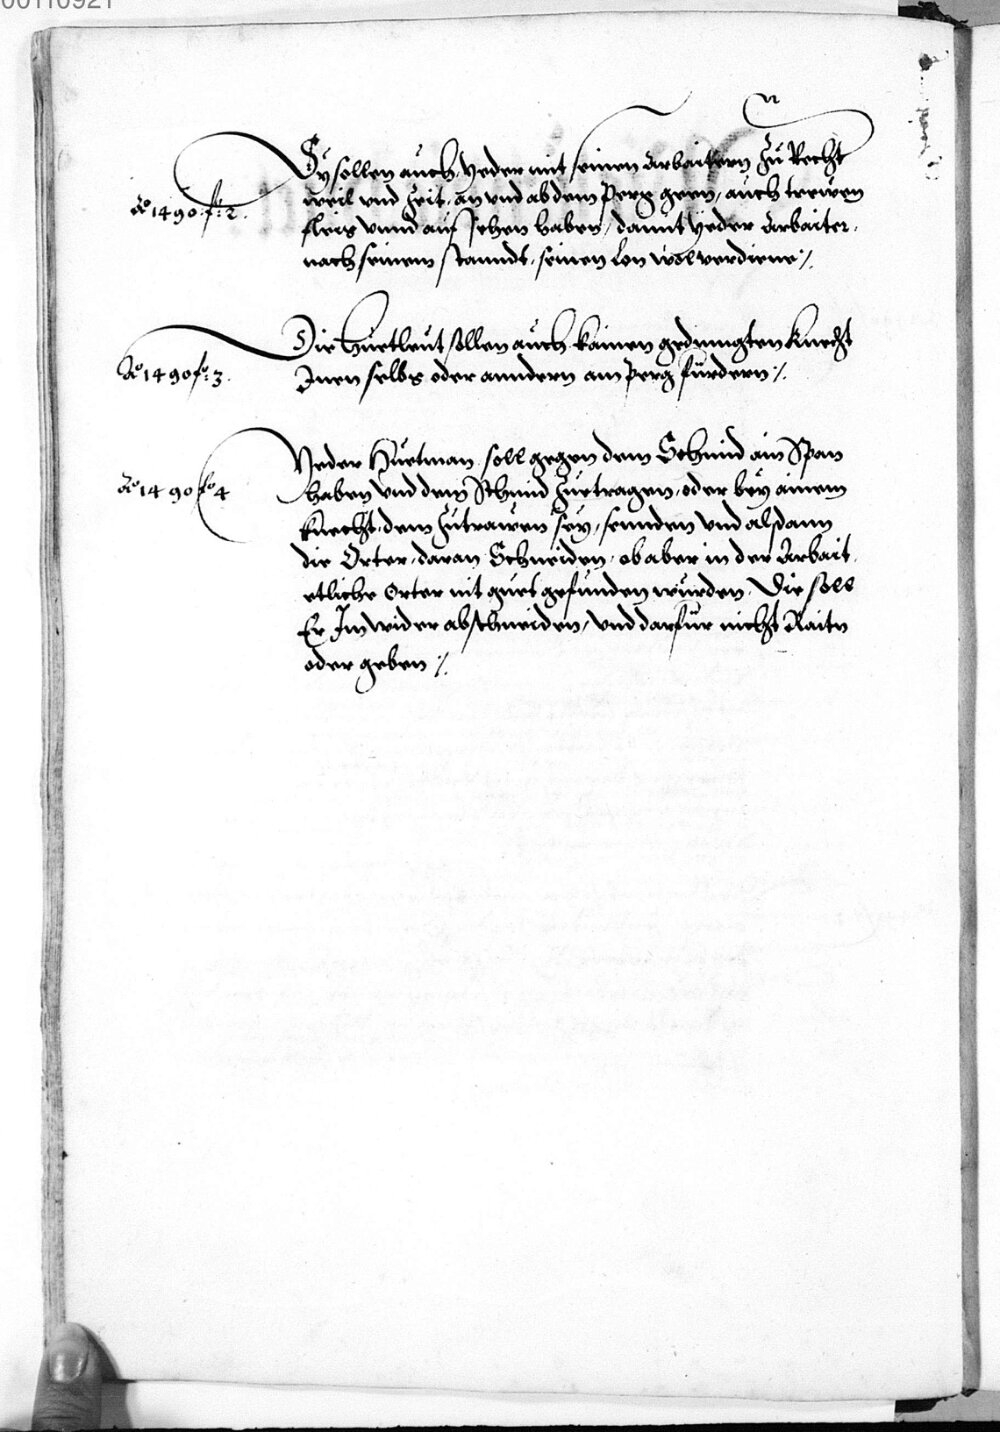 00110921
Sy sollen auch, yeder mit seinen Arbaitern zu Recht
weil vnd Zeit, an vnd ab dem Perg geen, auch trewen
fleis vnnd auf sehen haben, damit yeder Arbaiter,
nach seinem stanndt, seinen Lon wol verdiene ./.
Ao 1490 fo: 2.
Die Huetleut sollen auch kainen gedinngten knecht
Inen selbs oder anndern am Perg fürdern ./.
Ao 1490 fo: 3.
Yeder Huetman soll gegen dem Schmid ain Span
haben vnd dem Schmid zuetragen, oder bey ainem
knecht, dem zutrawen sey, sennden vnd alsdann
die Örter, daran Schneiden, ob aber in der Arbait
etliche Örter nit guet gefunden wurden, Die soll
Er Im wider abschneiden, vnd darfür nicht Raitn
oder geben ./.
Ao 1490 fo 4